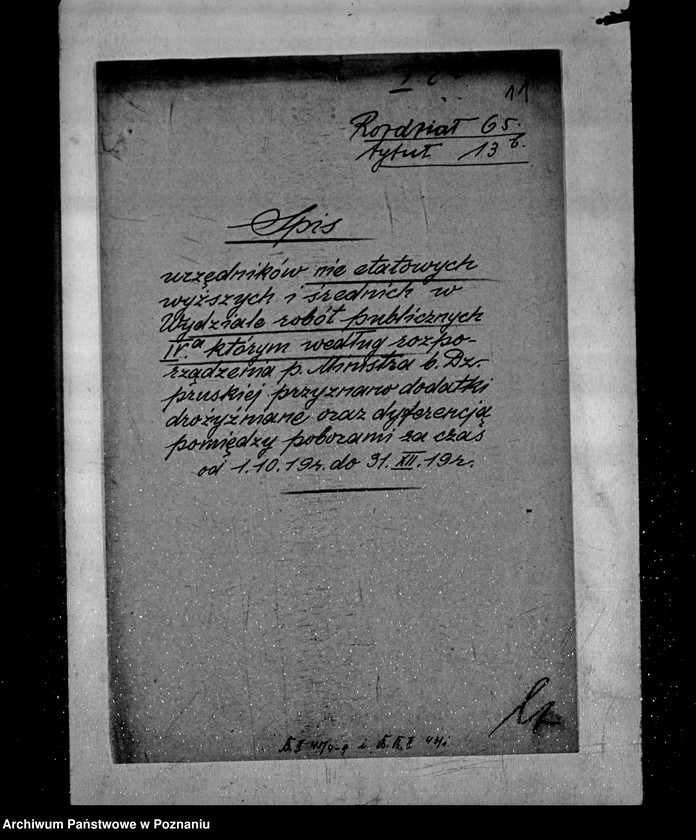 11
Rozdział 65.
tytuł 13 b.
Spis
urzędników nie etatowych
wyższych i średnich w
Wydziale robót publicznych
IV.a którym według rozpo-
rządzenia p. Ministra b. Dz.
pruskiej przyznano dodatki
drożyźniane oraz dyferencją
pomiędzy poborami za czas
od 1.10.19r. do 31.XII.19r.
Archiwum Państwowe w Poznaniu